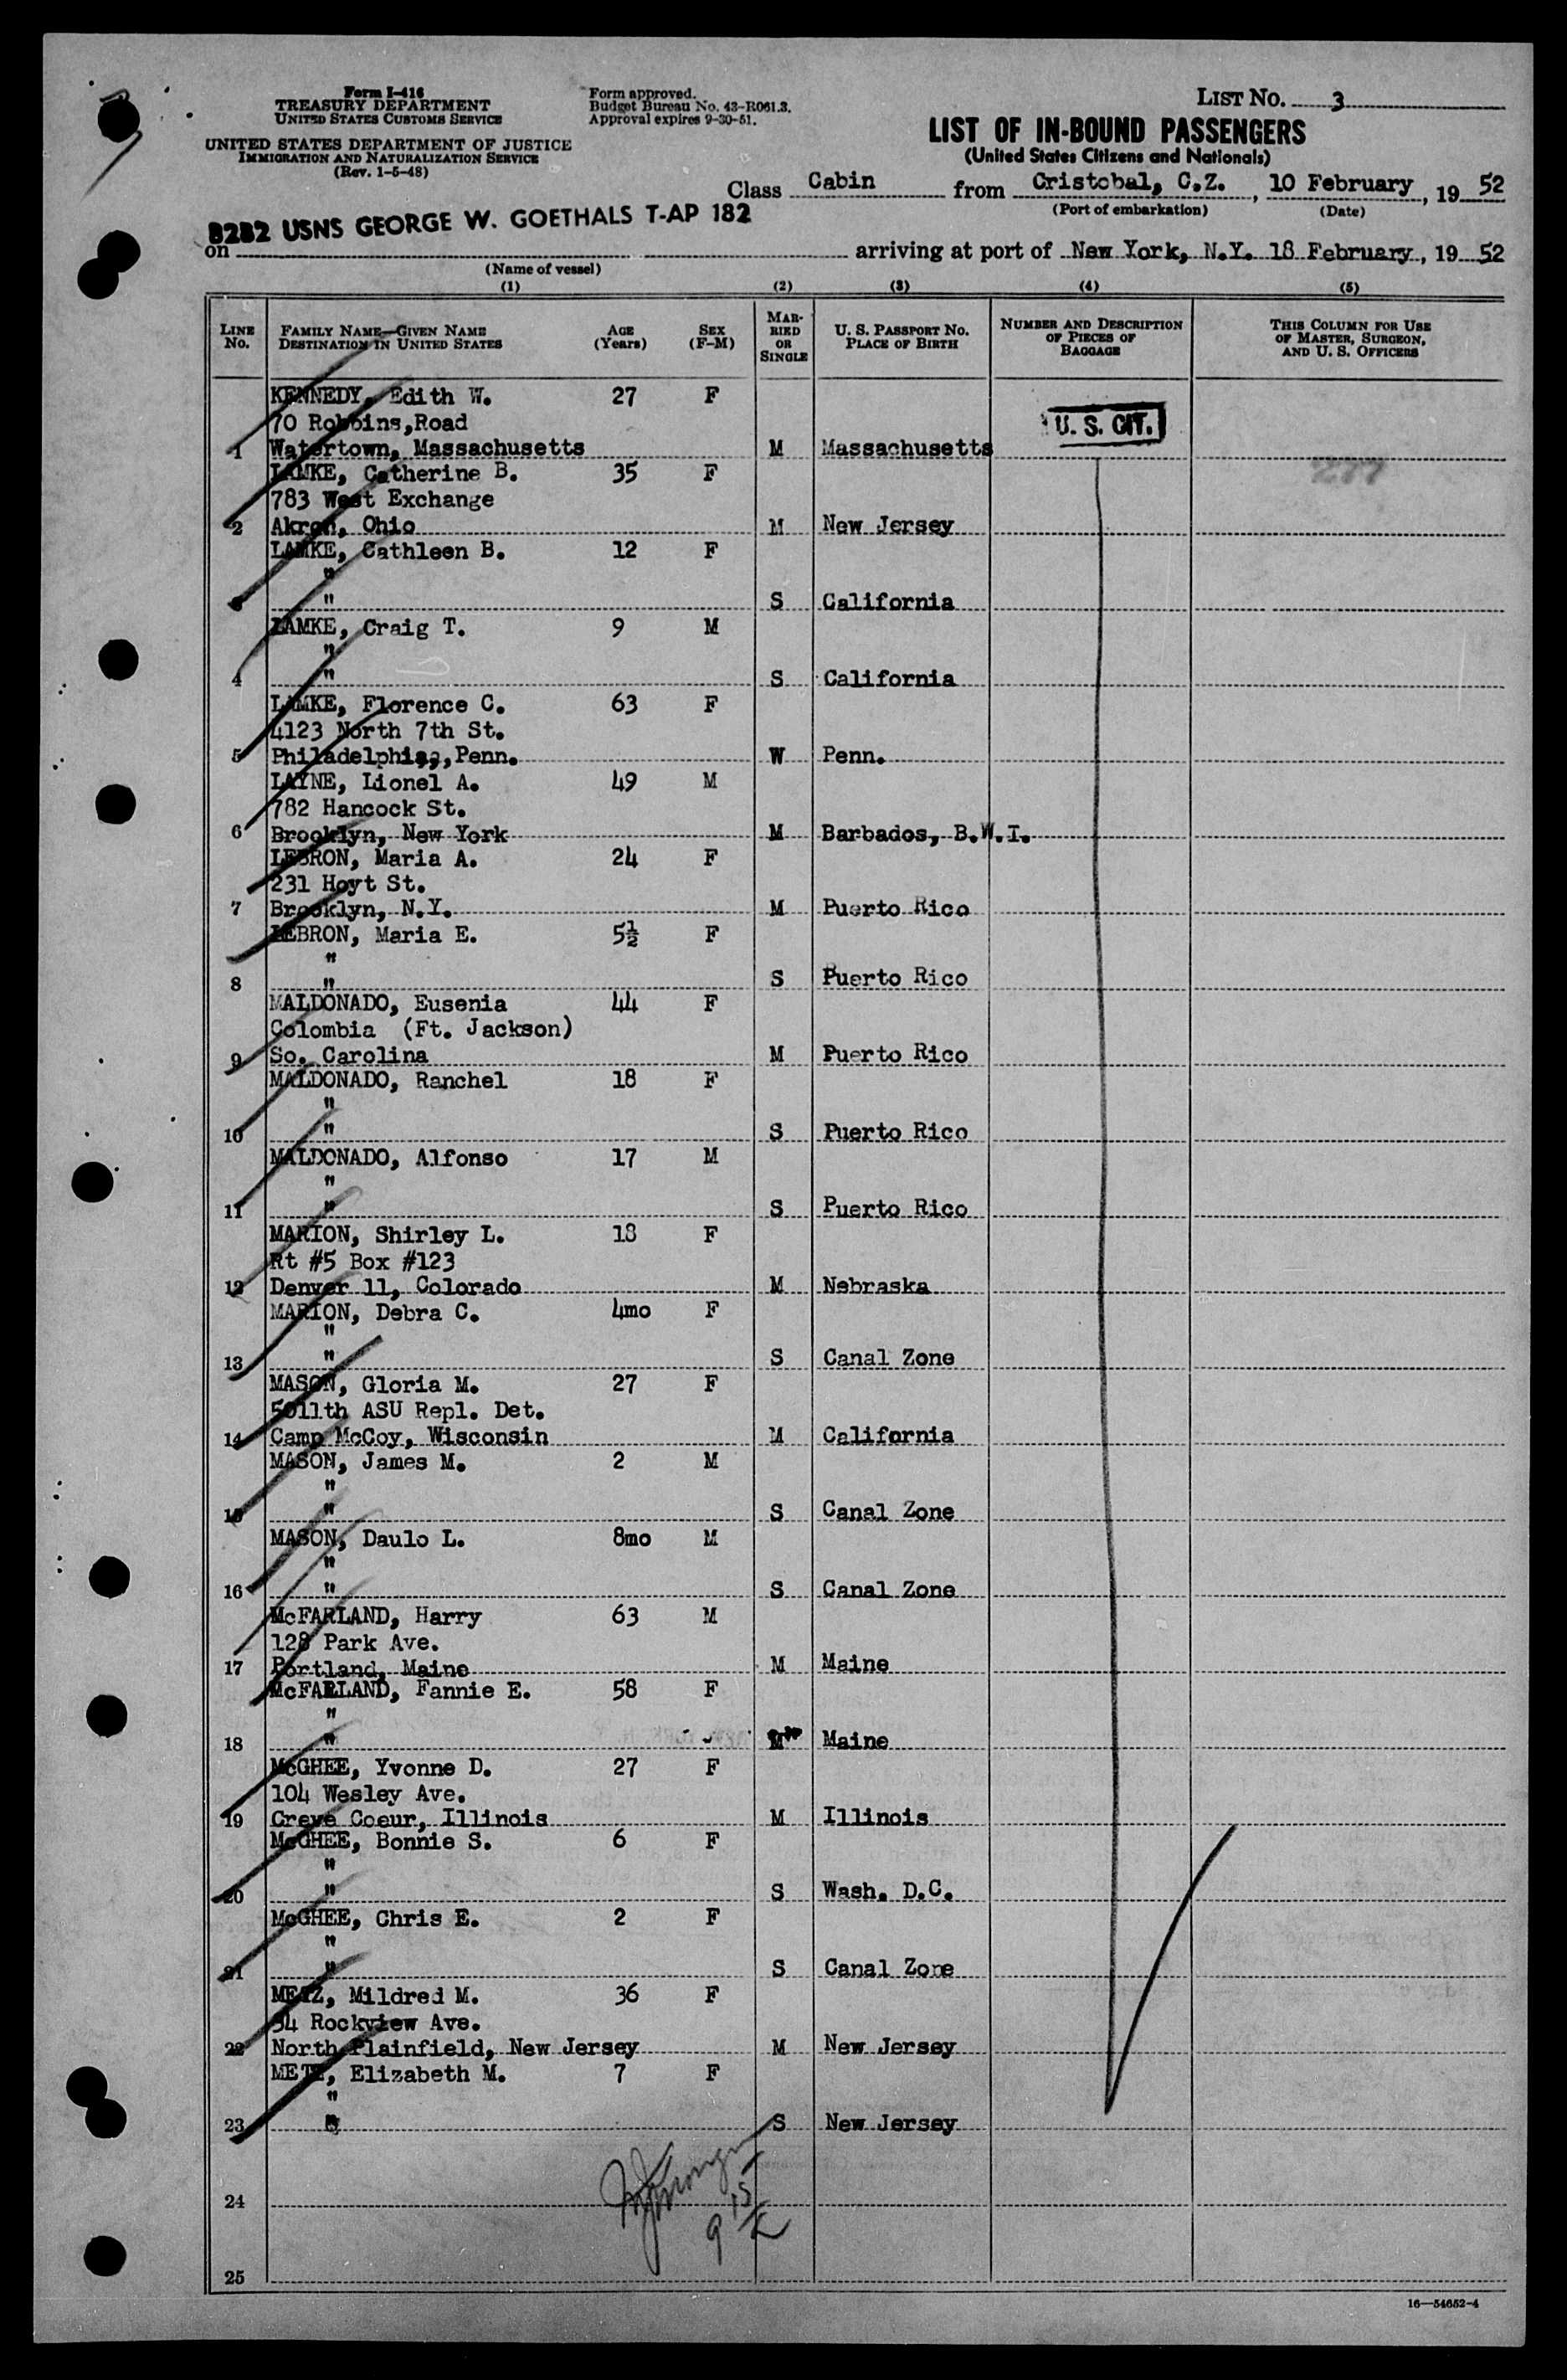 Form I-416
TREASURY DEPARTMENT
UNITED STATES CUSTOMS SERVICE
UNITED STATES DEPARTMENT OF JUSTICE
IMMIGRATION AND NATURALIZATION SERVICE
(Rev. 1-5-48)
Form approved.
Budget Bureau No. 43-R061.3.
Approval expires 9-30-51.
LIST NO. 3
LIST OF IN-BOUND PASSENGERS
(United States Citizens and Nationals)
Class Cabin from Cristobal, C.Z., 10 February, 19 52
(Port of embarkation) (Date)
USNS GEORGE W. GOETHALS T-AP 182
on arriving at port of New York, N.Y. 18 February, 19 52
(Name of vessel)
(1) (2) (3) (4) (5)
LINE NO. FAMILY NAME—GIVEN NAME DESTINATION IN UNITED STATES AGE (Years) SEX (F-M) MARRIED OR SINGLE U. S. PASSPORT NO. PLACE OF BIRTH NUMBER AND DESCRIPTION OF PIECES OF BAGGAGE THIS COLUMN FOR USE OF MASTER, SURGEON, AND U. S. OFFICERS
KENNEDY, Edith W. 27 F
70 Robbins, Road U. S. CIT.
1 Watertown, Massachusetts M Massachusetts
LAMKE, Catherine B. 35 F
783 West Exchange
2 Akron, Ohio M New Jersey
LAMKE, Cathleen B. 12 F
"
3 " S California
LAMKE, Craig T. 9 M
"
4 " S California
LAMKE, Florence C. 63 F
4123 North 7th St.
5 Philadelphia, Penn. W Penn.
LAYNE, Lionel A. 49 M
782 Hancock St.
6 Brooklyn, New York M Barbados, B.W.I.
LEBRON, Maria A. 24 F
231 Hoyt St.
7 Brooklyn, N.Y. M Puerto Rico
LEBRON, Maria E. 5½ F
"
8 " S Puerto Rico
MALDONADO, Eusenia 44 F
Colombia (Ft. Jackson)
9 So. Carolina M Puerto Rico
MALDONADO, Ranchel 18 F
"
10 " S Puerto Rico
MALDONADO, Alfonso 17 M
"
11 " S Puerto Rico
MARION, Shirley L. 18 F
Rt #5 Box #123
12 Denver 11, Colorado M Nebraska
MARION, Debra C. 4mo F
"
13 " S Canal Zone
MASON, Gloria M. 27 F
5011th ASU Repl. Det.
14 Camp McCoy, Wisconsin M California
MASON, James M. 2 M
"
15 " S Canal Zone
MASON, Daulo L. 8mo M
"
16 " S Canal Zone
McFARLAND, Harry 63 M
128 Park Ave.
17 Portland, Maine M Maine
McFARLAND, Fannie E. 58 F
"
18 " M Maine
McGHEE, Yvonne D. 27 F
104 Wesley Ave.
19 Creve Coeur, Illinois M Illinois
McGHEE, Bonnie S. 6 F
"
20 " S Wash. D.C.
McGHEE, Chris E. 2 F
"
21 " S Canal Zone
METZ, Mildred M. 36 F
Rockview Ave.
22 North Plainfield, New Jersey M New Jersey
METZ, Elizabeth M. 7 F
"
23 " S New Jersey
24
25
16—54652-4